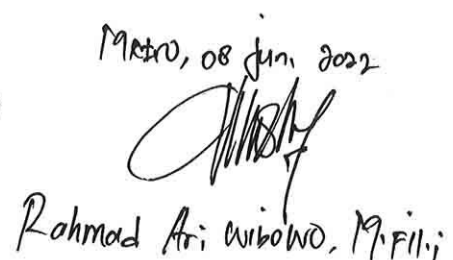 Metro, 08 Juni 2022
Rahmad Ari Wibowo, M.Fil.i